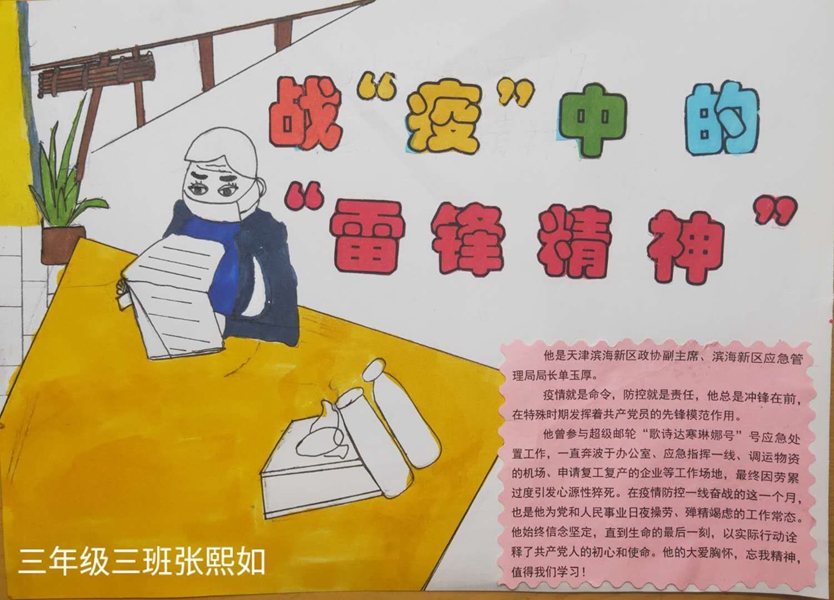 战“疫”中的
“雷锋精神”
他是天津滨海新区政协副主席、滨海新区应急管
理局局长单玉厚。
疫情就是命令，防控就是责任，他总是冲锋在前，
在特殊时期发挥着共产党员的先锋模范作用。
他曾参与超级邮轮“歌诗达寒琳娜号”号应急处
置工作，一直奔波于办公室、应急指挥一线、调运物资
的机场、申请复工复产的企业等工作场地，最终因劳累
过度引发心源性猝死。在疫情防控一线奋战的这一个月，
也是他为党和人民事业日夜操劳、殚精竭虑的工作常态。
他始终信念坚定，直到生命的最后一刻，以实际行动诠
释了共产党人的初心和使命。他的大爱胸怀，忘我精神，
值得我们学习！
三年级三班张熙如